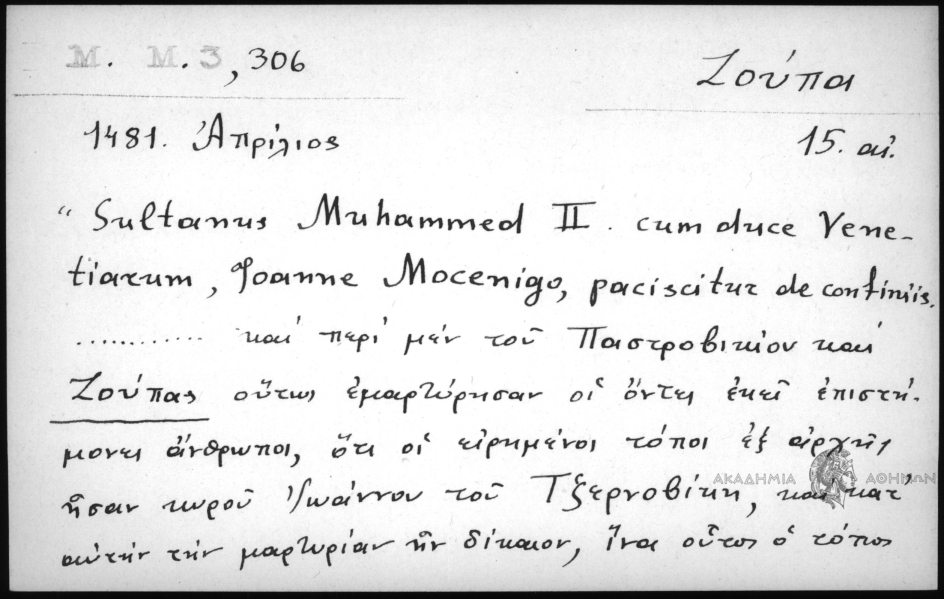 M. M.3, 306
Ζούπα
1481. Ἀπρίλιος
15. αἰ.
“Sultanus Muhammed II. cum duce Vene-
tiarum, Joanne Mocenigo, paciscitur de confiniis.
............ καί περί μέν τοῦ Παστροβικίου καί
Ζούπας οὕτως ἐμαρτύρησαν οἱ ὄντες ἐκεῖ ἐπιστή-
μονες ἄνθρωποι, ὅτι οἱ εἰρημένοι τόποι ἐξ ἀρχῆς
ἦσαν κυροῦ Ἰωάννου τοῦ Τζερνοβίκη, καί κατ’
αὐτήν τήν μαρτυρίαν ἦν δίκαιον, ἵνα οὗτος ὁ τόπος
ΑΚΑΔΗΜΙΑ ΑΘΗΝΩΝ